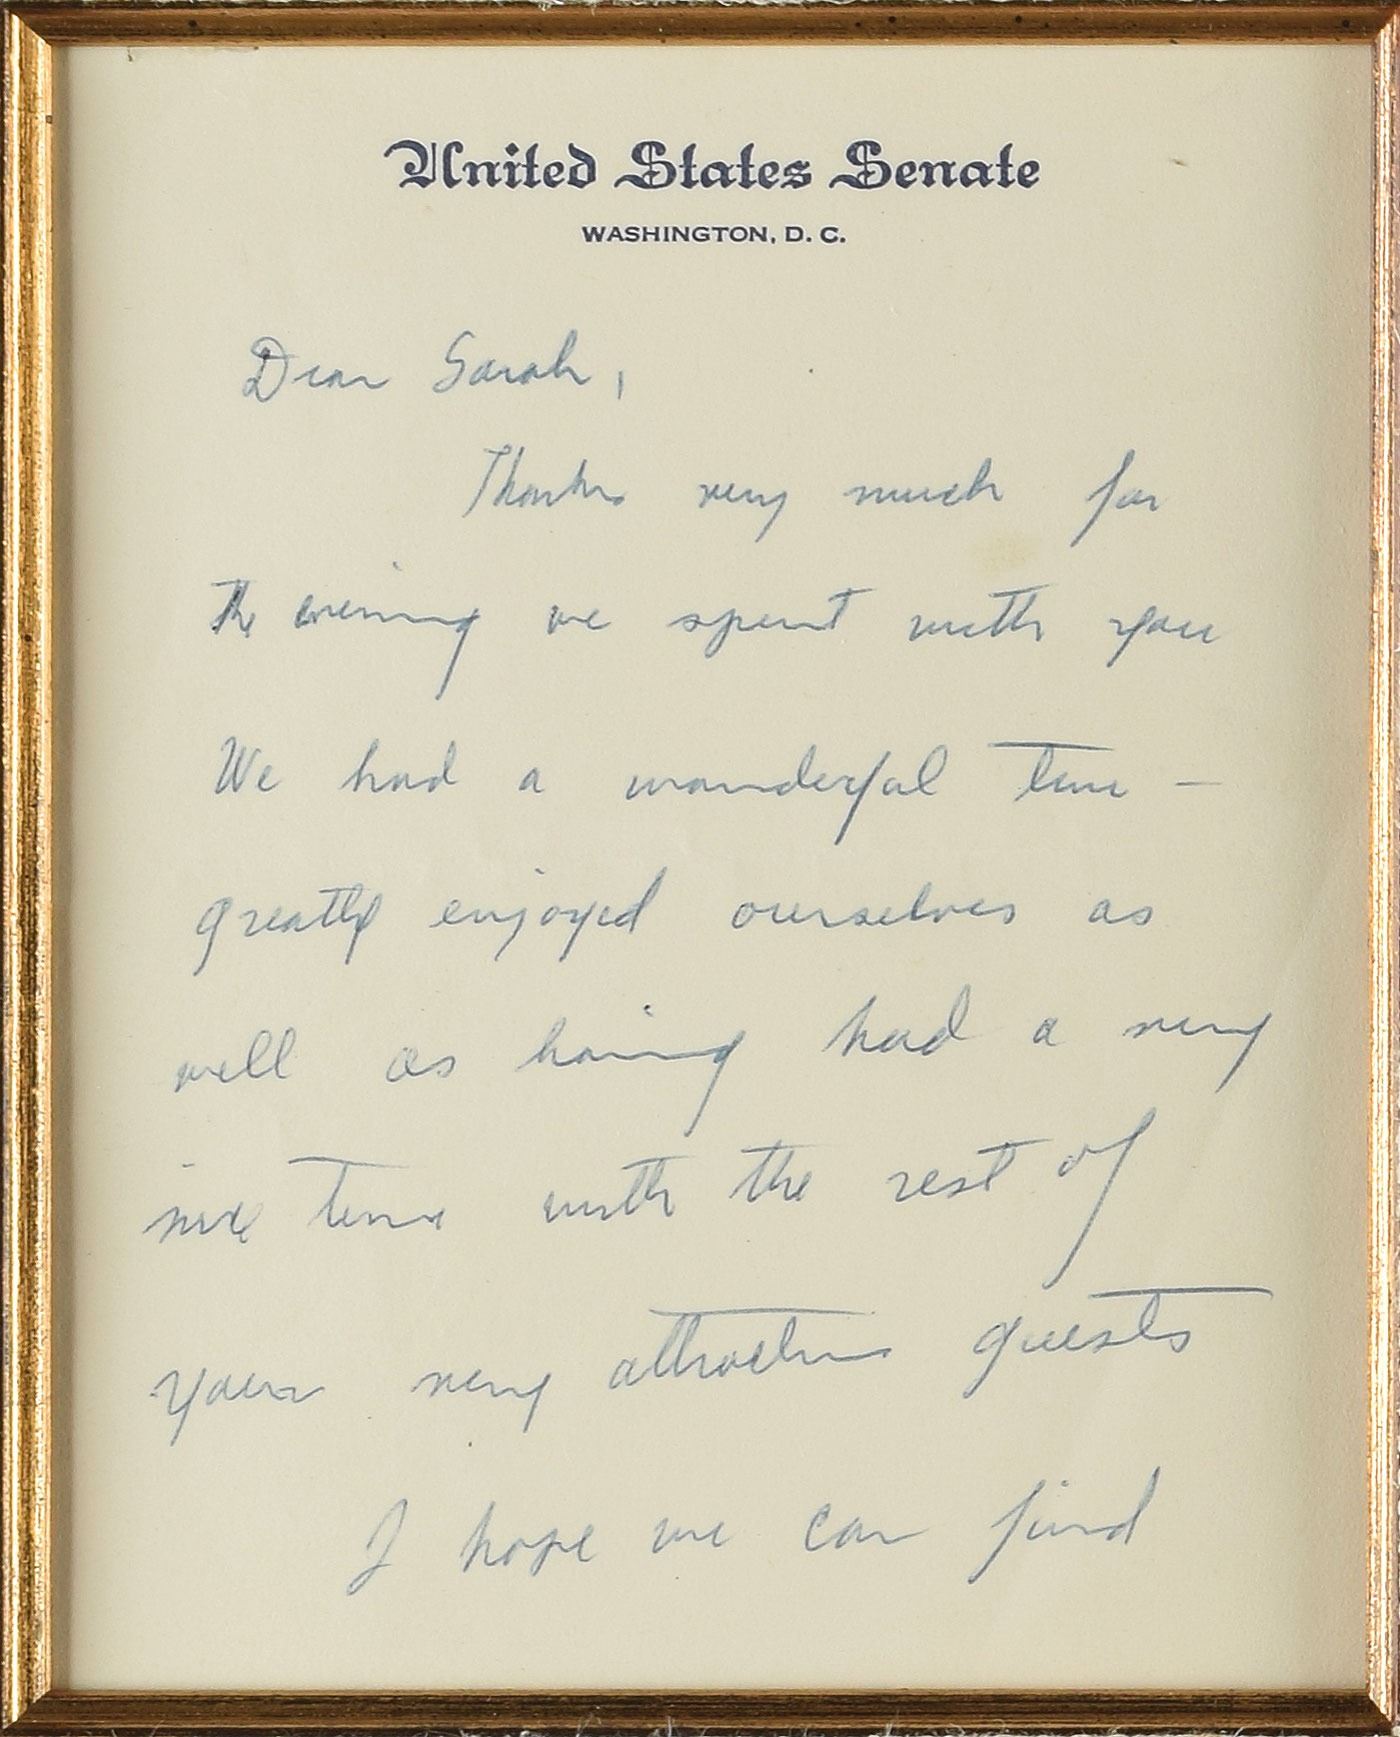 United States Senate
WASHINGTON, D. C.
Dear Sarah,
Thanks very much for
the evening we spent with you
We had a wonderful time —
greatly enjoyed ourselves as
well as having had a very
nice time with the rest of
your very attractive guests
I hope we can find